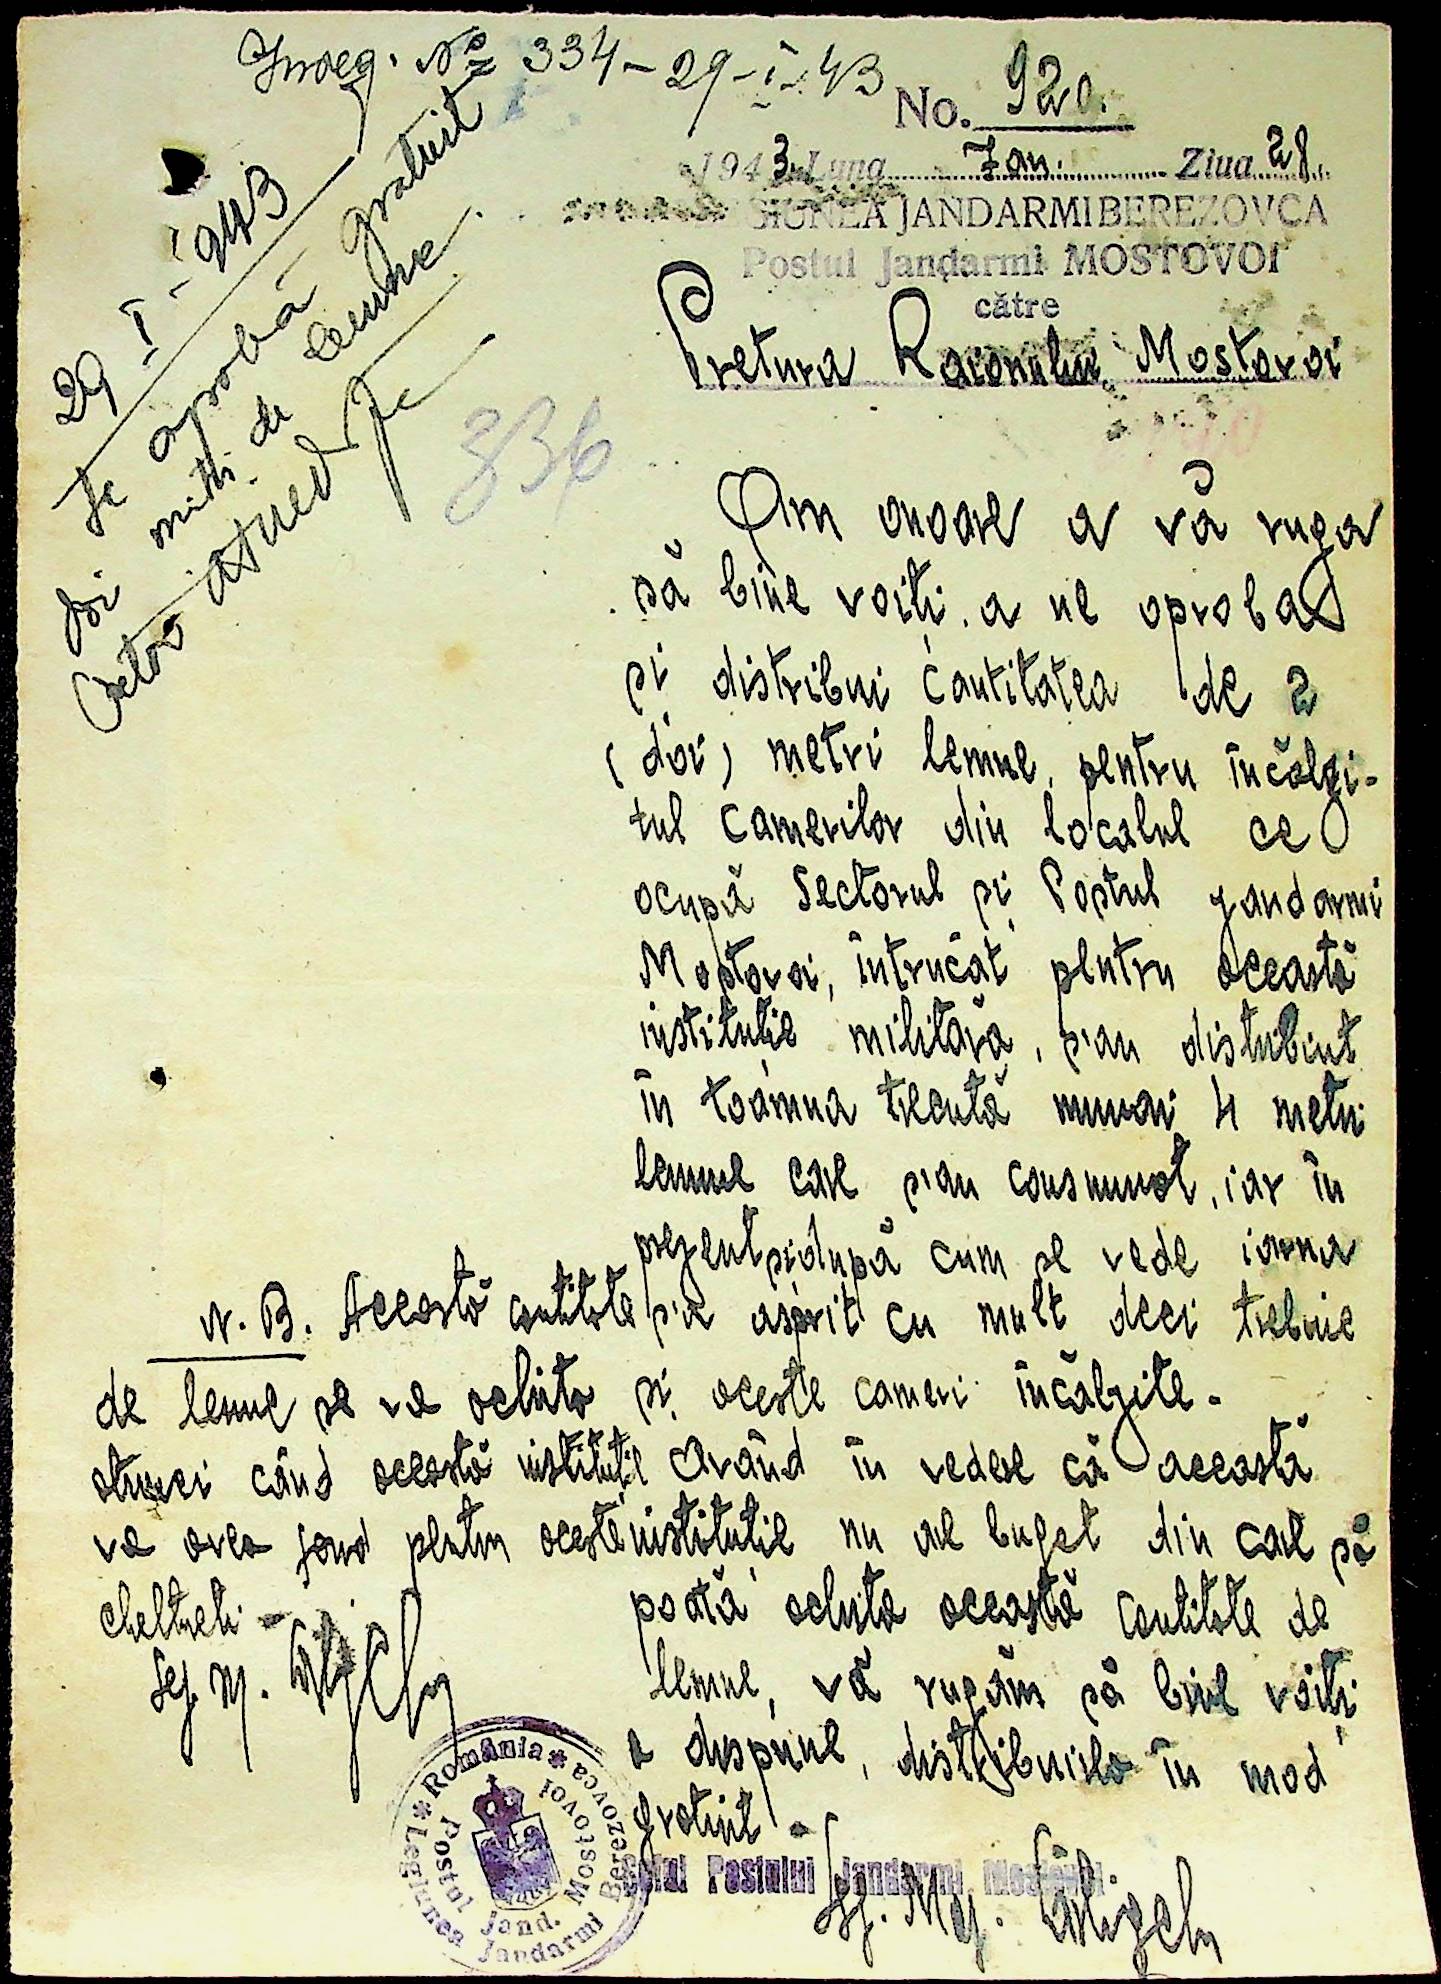 Înreg. Nº 334-29-I-43
No. 920.
1943 Luna Ian. Ziua 28.
LEGIUNEA JANDARMI BEREZOVCA
Postul Jandarmi MOSTOVOI
către
Pretura Raionului Mostovoi
29-I-943
Se aprobă gratuit
doi mtri de lemne.
836
Am onoare a vă ruga
să bine voiți a ne aproba
și distribui cantitatea de 2
(doi) metri lemne, pentru încălzi-
tul camerilor din localul ce
ocupă Sectorul și Postul jandarmi
Mostovoi, întrucât pentru această
instituție militară, s'au distribuit
în toamna trecută numai 4 metri
lemne care s'au consumat, iar în
prezent și după cum se vede iarna
s'a asprit cu mult deci trebuie
și aceste cameri încălzite.
Având în vedere că această
instituție nu are buget din care să
poată achita această cantitate de
lemne, vă rugăm să bine voiți
a dispune, distribuirla în mod
gratuit.
Șeful Postului Jandarmi Mostovoi
Sg. Maj.
N.B. Această cantitate
de lemne se va achita
atunci când această instituție
va avea fond pentru aceste
cheltueli.
Sg. M.
România
Legiunea Jandarmi Berezovca
Postul Jand. Mostovoi